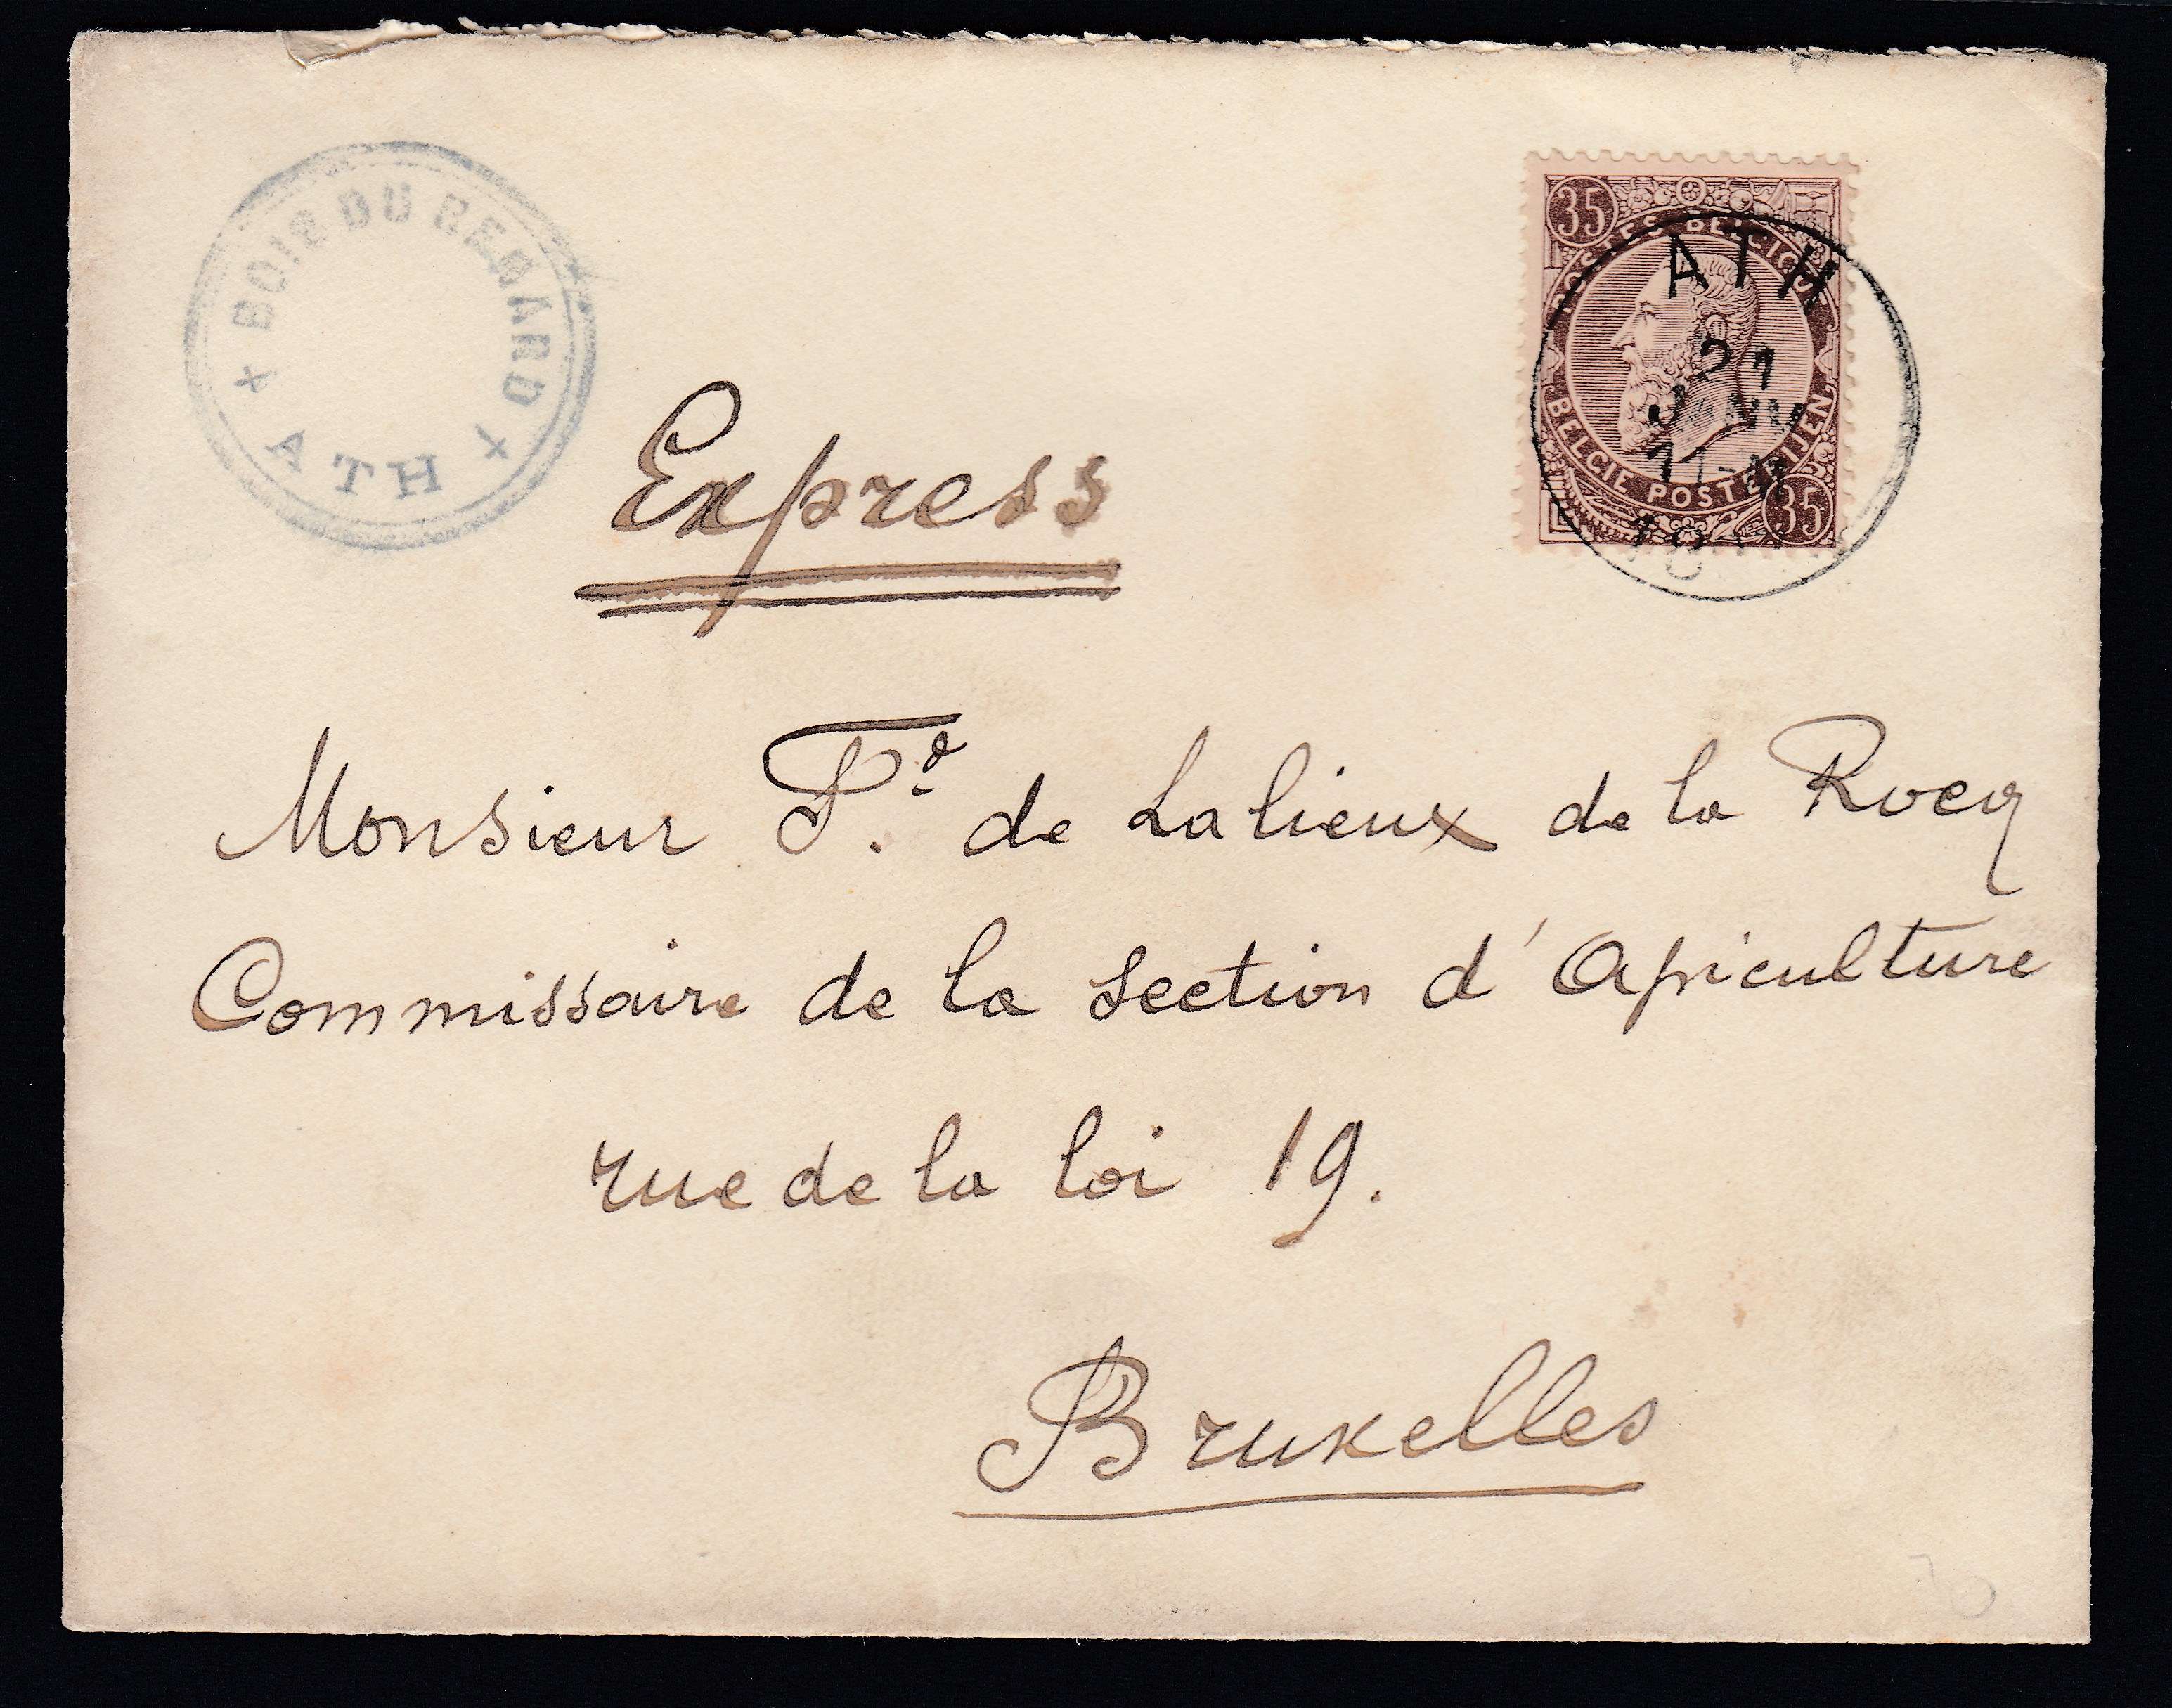 BOIS DU RENARD
ATH
Express
35
POSTES BELGIQUE
ATH
21
JANV
BELGIE POSTERIJEN
35
Monsieur F.d de Lalieux de la Rocq
Commissaire de la section d'Apiculture
rue de la loi 19.
Bruxelles